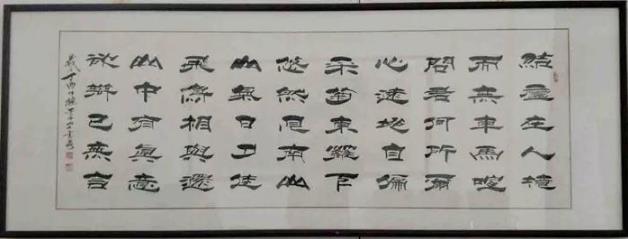 結廬在人境
而無車馬喧
問君何所爾
心遠地自偏
采菊東籬下
悠然見南山
山氣日夕佳
飛鳥相與還
此中有真意
欲辯已無言
歲丁酉